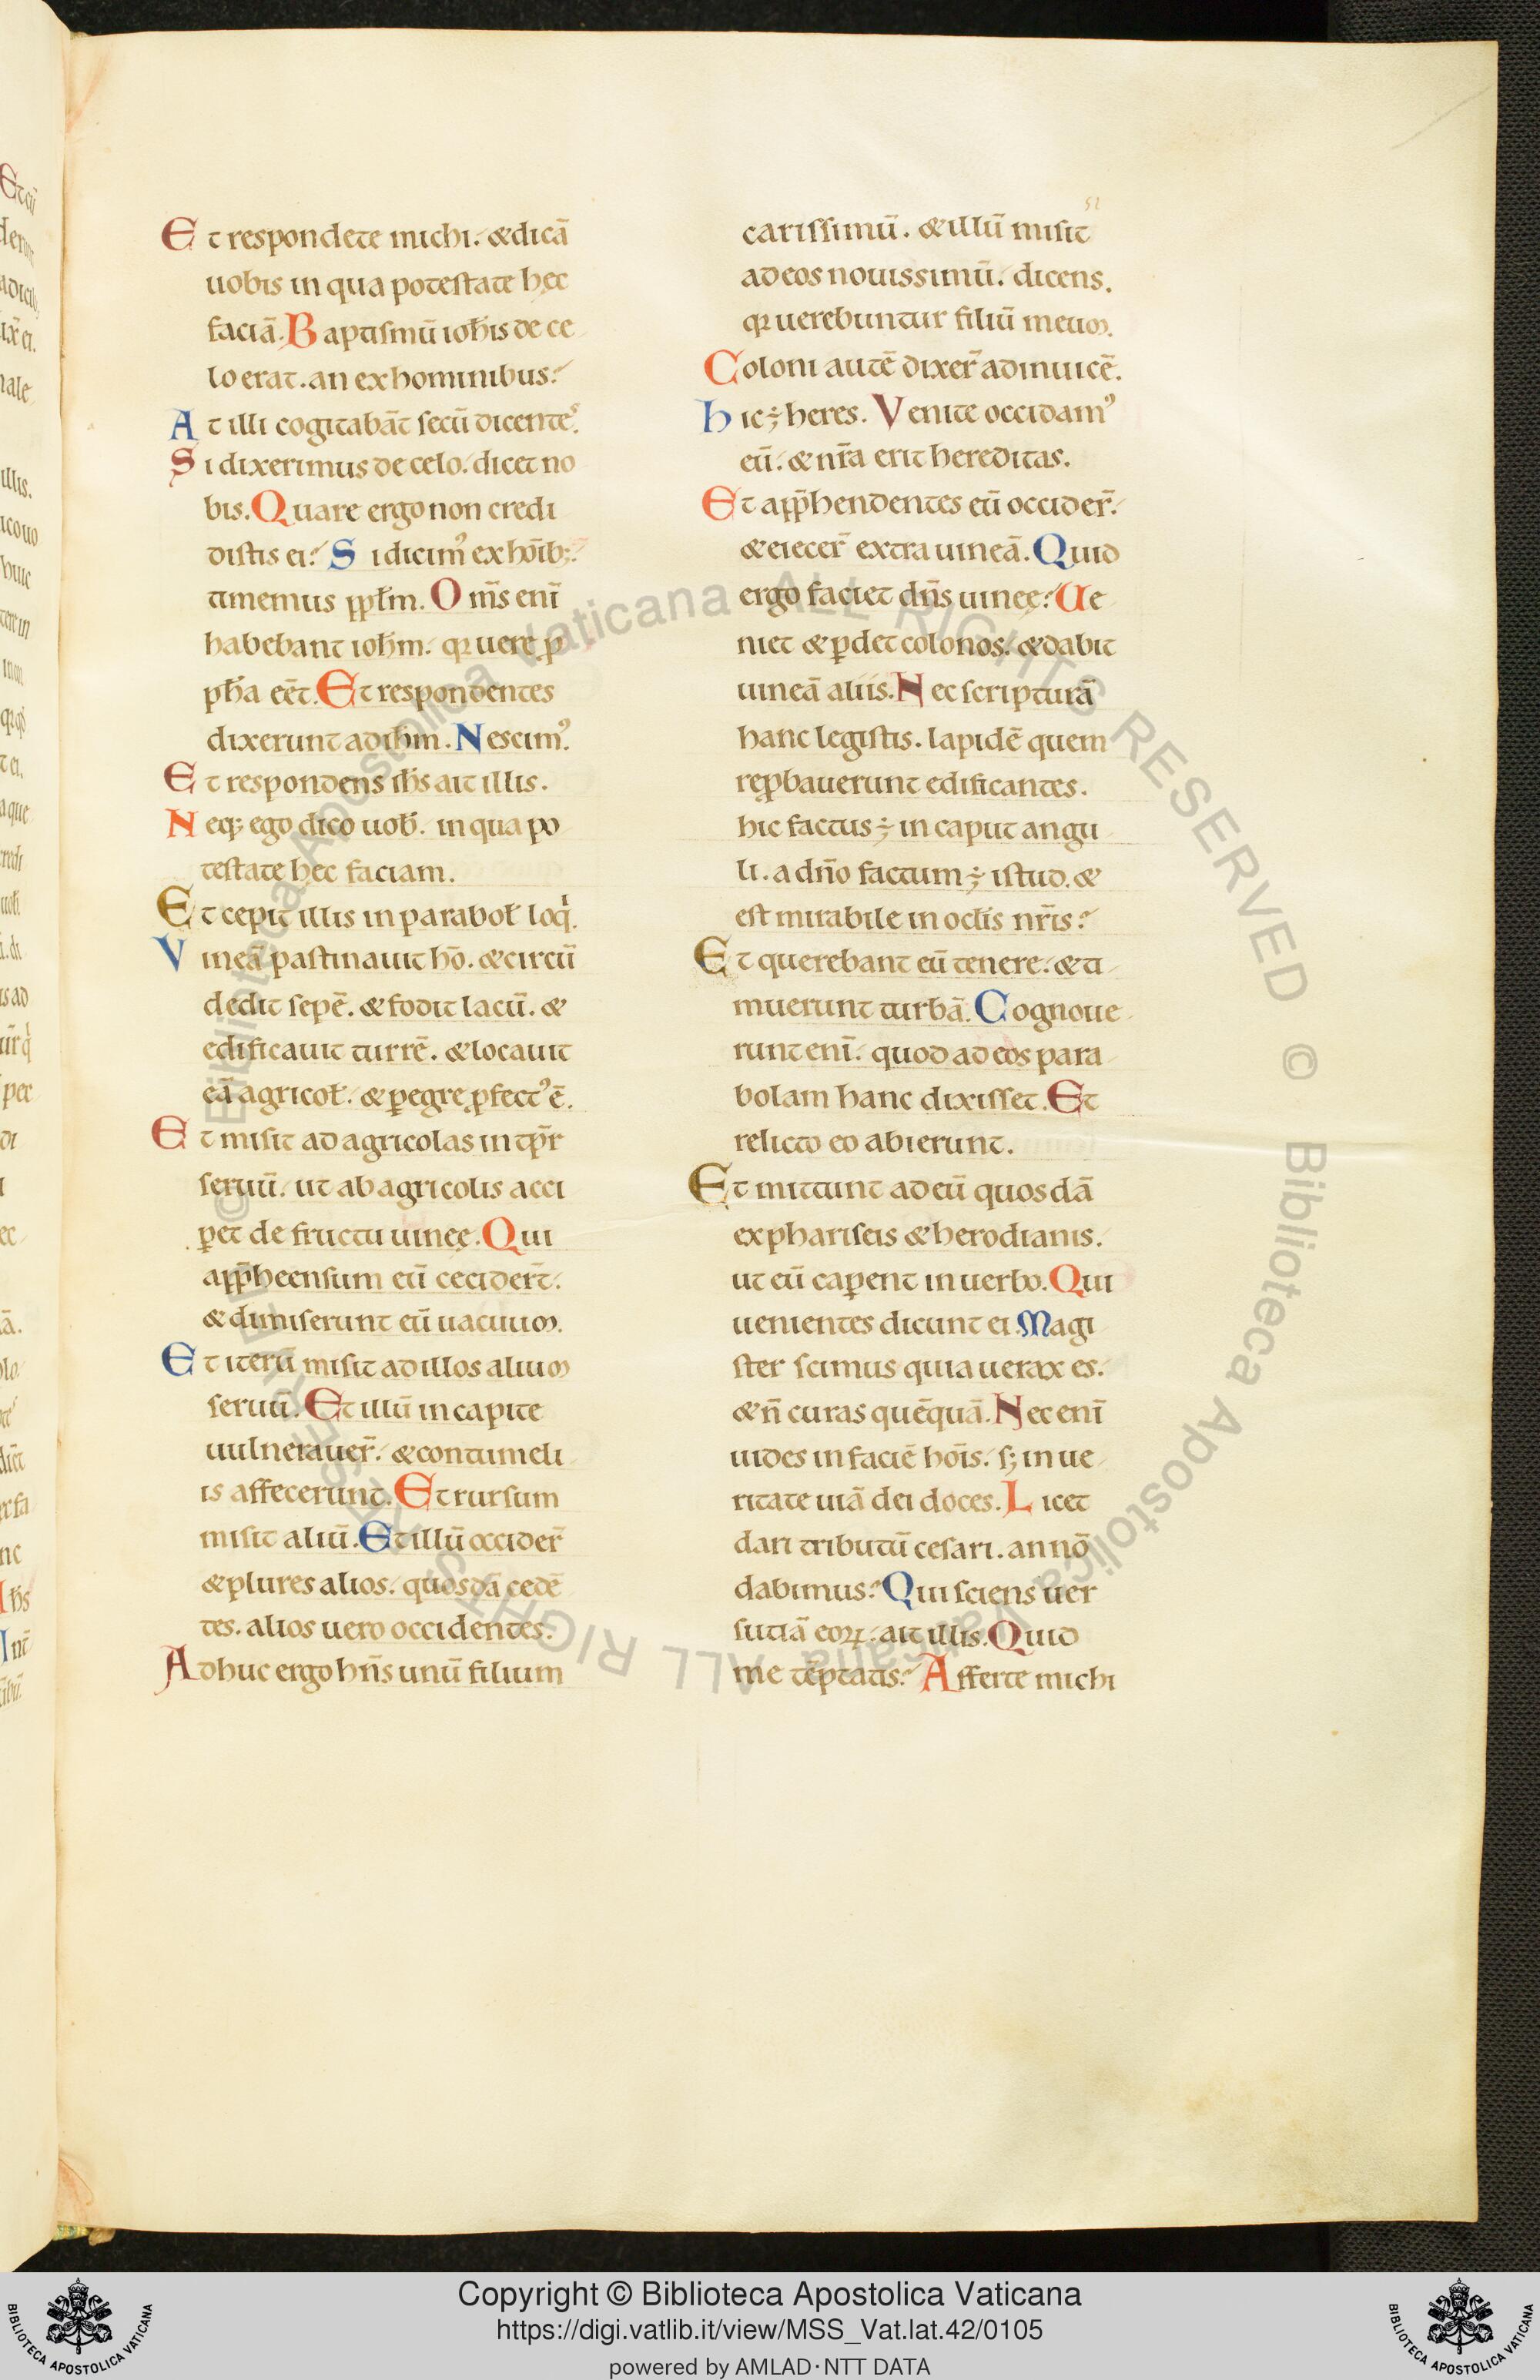 Et respondete michi. & dicā
uobis in qua potestate hęc
faciā. Baptismū ioh̄is de ce
lo erat. an ex hominibus?
At illi cogitabāt secū dicentes.
Si dixerimus de celo. dicet no
bis. Quare ergo non credi
distis ei? Si dicimꝰ ex hoīb;?
timemus pplm̄. Om̄s enī
habebant ioh̄m. qꝛ uere ꝓ
ph̄a eēt. Et respondentes
dixerunt ad ih̄m. Nescimꝰ.
Et respondens ih̄s ait illis.
Neq; ego dico uob̄. in qua po
testate hęc faciam.
Et cepit illis in parabol̄ loq̇.
Vineā pastinauit hō. & circū
dedit sepē. & fodit lacū. &
edificauit turrē. & locauit
eā agricol̄. & ꝑegre ꝓfectꝰ ē.
Et misit ad agricolas in tp̄r
seruū. ut ab agricolis acci
ꝑet de fructu uineę. Qui
app̄heensum eū cecidert̄.
& dimiserunt eū uacuum.
Et iterū misit ad illos alium
seruū. Et illū in capite
uulnerauer̄. & contumeli
is affecerunt. Et rursum
misit aliū. Et illū occider̄
& plures alios. quosdā cedē
tes. alios uero occidentes.
Adhuc ergo hn̄s unū filium
52
carissimū. & illū misit
ad eos nouissimū. dicens.
qꝛ uerebuntur filiū meum.
Coloni autē dixer̄ ad inuicē.
hic ÷ heres. Venite occidamꝰ
eū. & nr̄a erit hereditas.
Et app̄hendentes eū occider̄.
& eiecer̄ extra uineā. Quid
ergo faciet dn̄s uineę? Ue
niet & ꝑdet colonos. & dabit
uineā aliis. Nec scripturā
hanc legistis. lapidē quem
reꝓbauerunt edificantes.
hic factus ÷ in caput angu
li. a dn̄o factum ÷ istud. &
est mirabile in oclīs nr̄is?
Et querebant eū tenere. & ti
muerunt turbā. Cognoue
runt enī. quod ad eos para
bolam hanc dixisset. Et
relicto eo abierunt.
Et mittunt ad eū quosdā
ex phariseis & herodianis.
ut eū caꝑent in uerbo. Qui
uenientes dicunt ei. Magi
ster scimus quia uerax es.
& n̄ curas quēquā. Nec enī
uides in faciē hoīs. s; in ue
ritate uiā dei doces. Licet
dari tributū cesari. an nō
dabimus? Qui sciens uer
sutiā eoꝝ. ait illis. Quid
me tēptatis? Afferte michi
Copyright © Biblioteca Apostolica Vaticana
https://digi.vatlib.it/view/MSS_Vat.lat.42/0105
powered by AMLAD·NTT DATA